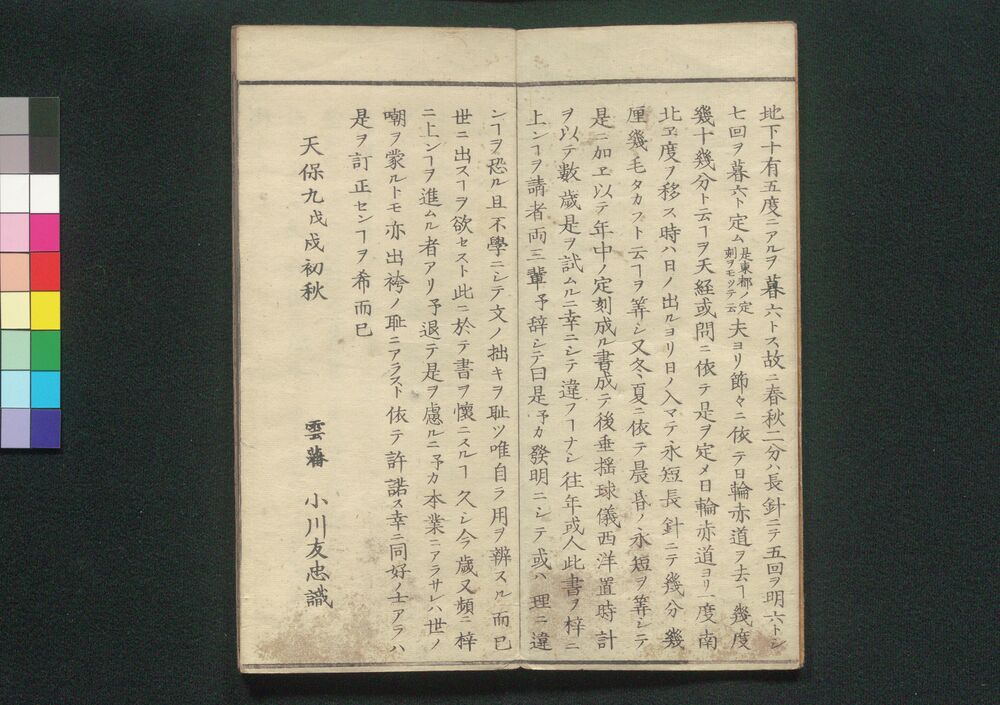 地下十有五度ニアルヲ暮六トス故ニ春秋二分ハ長針ニテ五回ヲ明六トシ
七回ヲ暮六ト定ム是東都ノ定刻ヲモッテ云夫ヨリ節々ニ依テ日輪赤道ヲ去ヿ幾度
幾十幾分ト云ヿヲ天経或問ニ依テ是ヲ定メ日輪赤道ヨリ一度南
北ヱ度ヲ移ス時ハ日ノ出ルヨリ日ノ入マテ永短長針ニテ幾分幾
厘幾毛タカフト云ヿヲ筭シ又冬夏ニ依テ晨昏ノ永短ヲ筭シテ
是ニ加ヱ以テ年中ノ定刻成ル書成テ後垂揺球儀西洋置時計
ヲ以テ數歳是ヲ試ムルニ幸ニシテ違フヿナシ往年或人此書ヲ梓ニ
上ンヿヲ請者両三輩予辞シテ曰是予カ發明ニシテ或ハ理ニ違
ンヿヲ恐ル且不學ニシテ文ノ拙キヲ耻ツ唯自ラ用ヲ辨スル而已
世ニ出スヿヲ欲セスト此ニ於テ書ヲ懐ニスルヿ久シ今歳又頻ニ梓
ニ上ンヿヲ進ムル者アリ予退テ是ヲ慮ルニ予カ本業ニアラサレハ世ノ
嘲ヲ蒙ルトモ亦出袴ノ耻ニアラスト依テ許諾ス幸ニ同好ノ士アラハ
是ヲ訂正センヿヲ希而已
天保九戊戌初秋
雲藩 小川友忠識